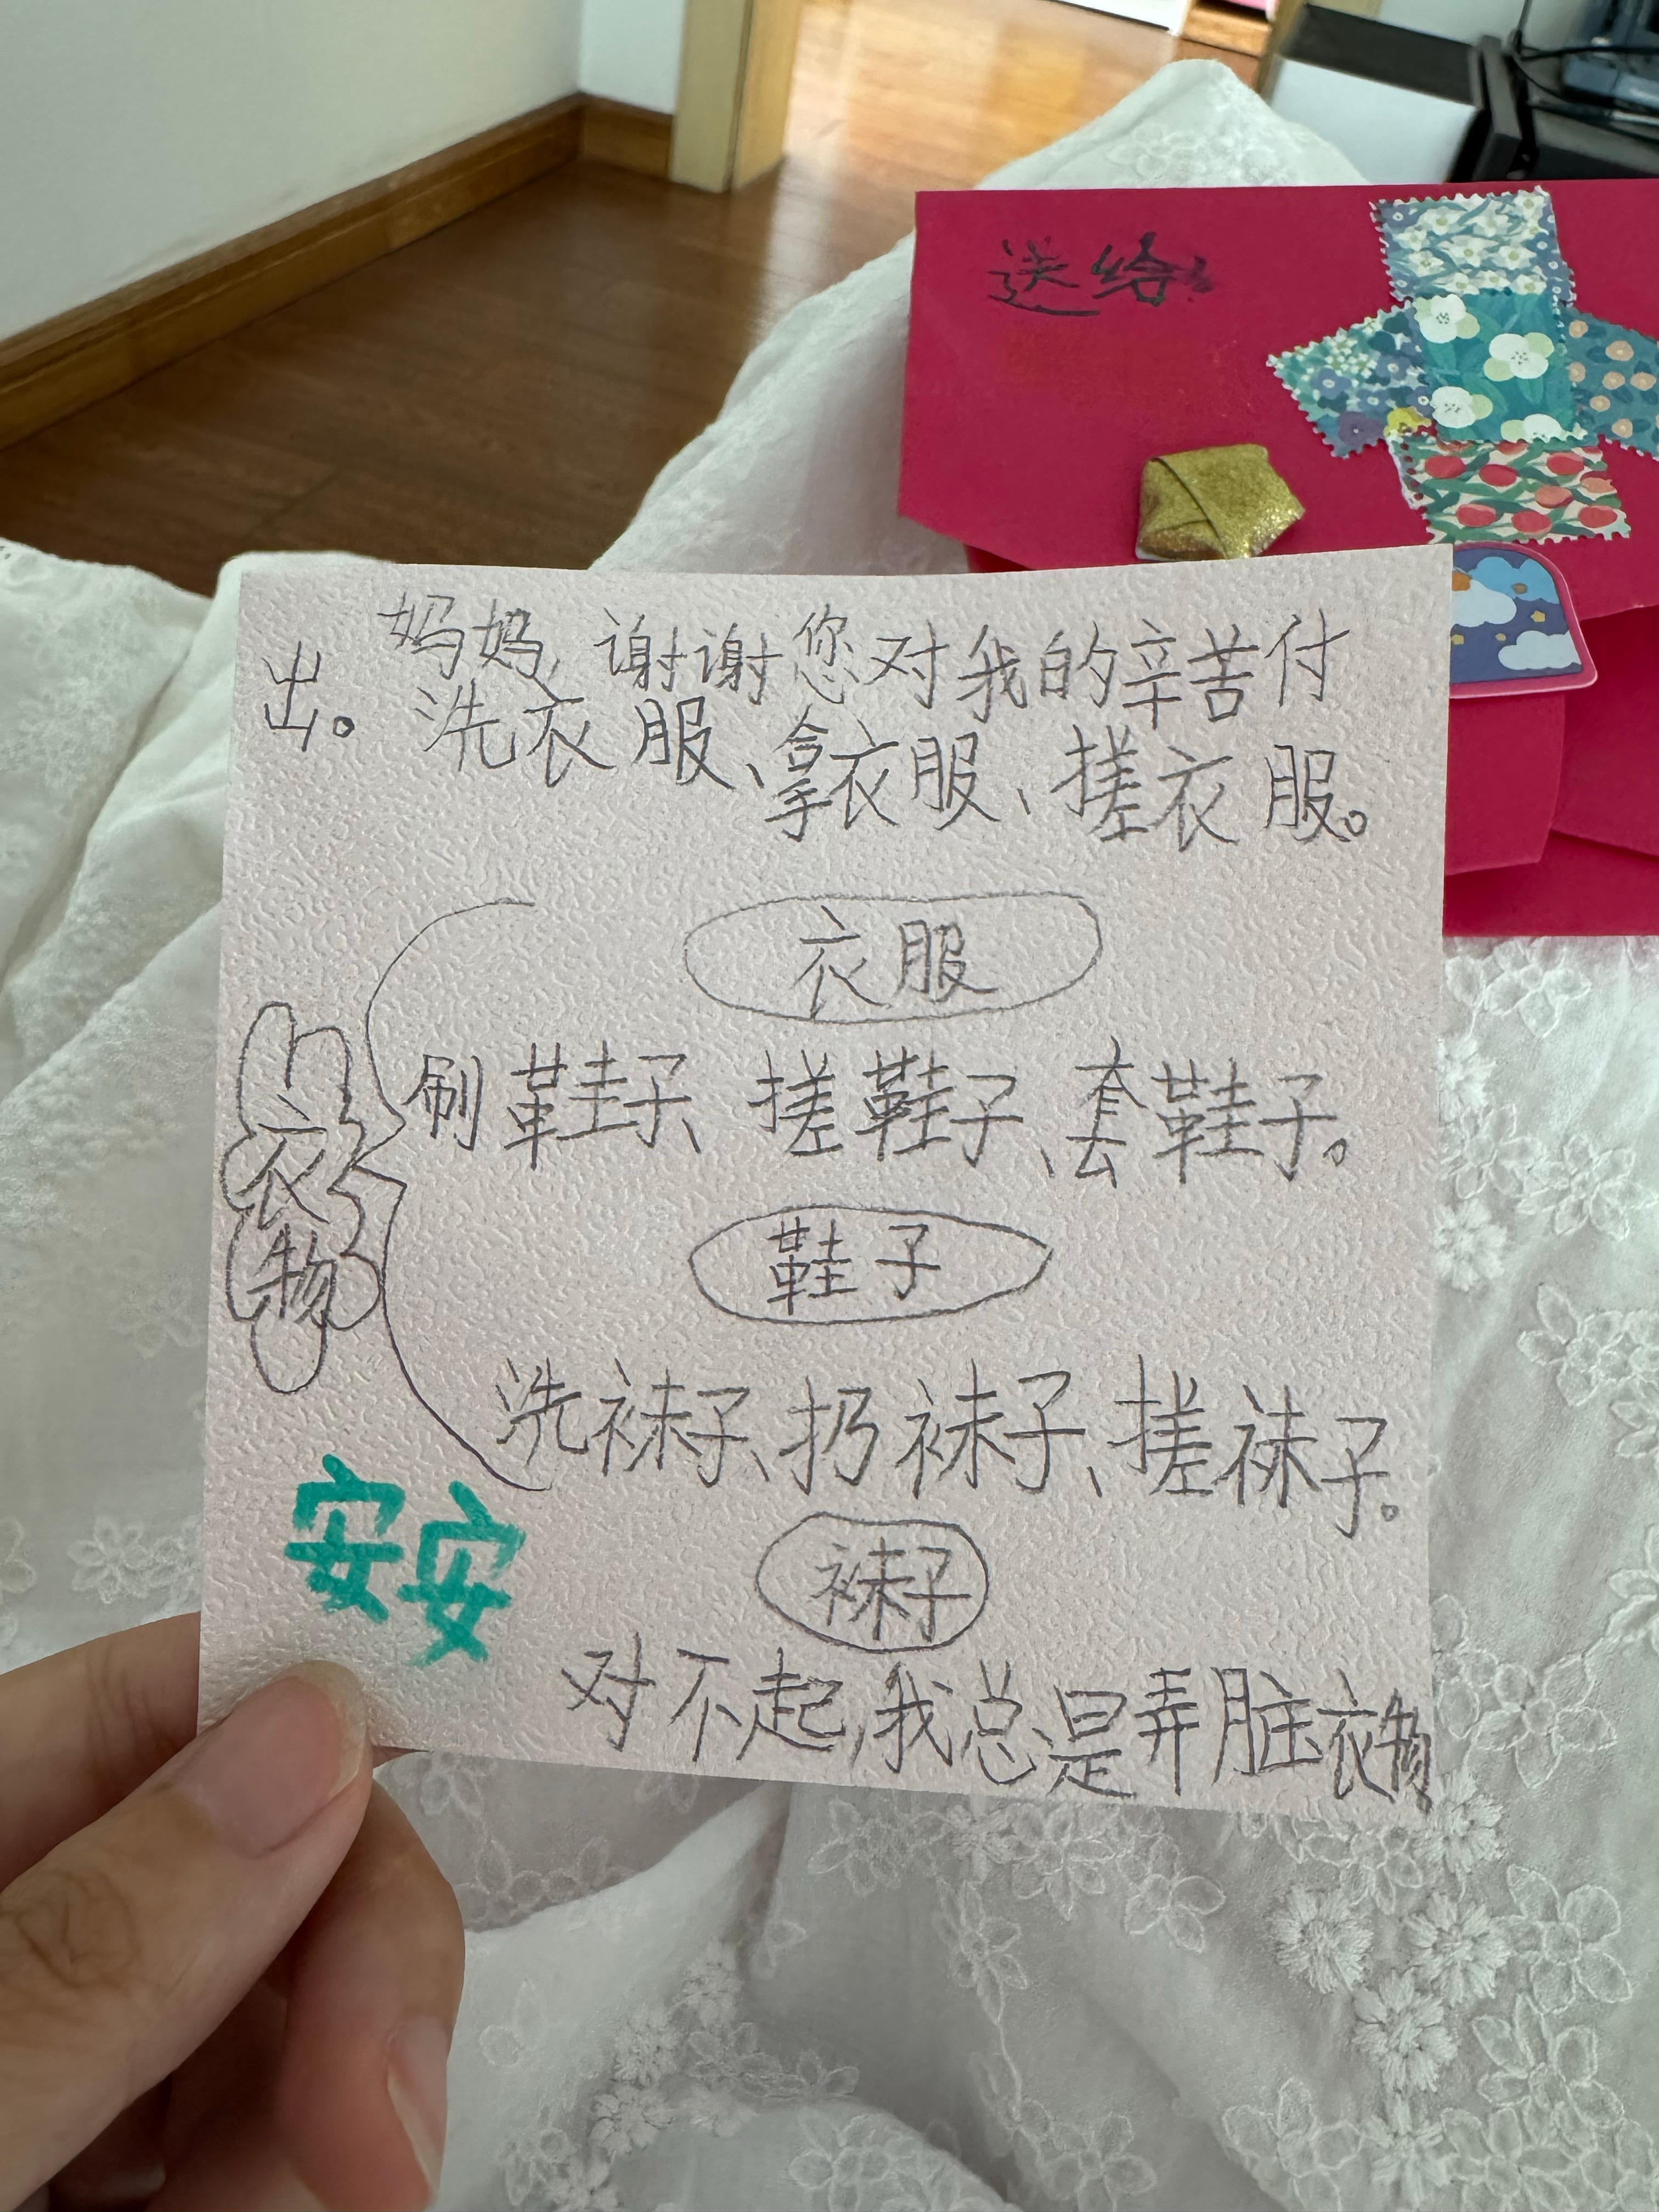 送给
妈妈,谢谢您对我的辛苦付
出。洗衣服、拿衣服、搓衣服。
衣服
刷鞋子、搓鞋子、套鞋子。
衣物
鞋子
洗袜子、扔袜子、搓袜子。
安安
袜子
对不起,我总是弄脏衣物。